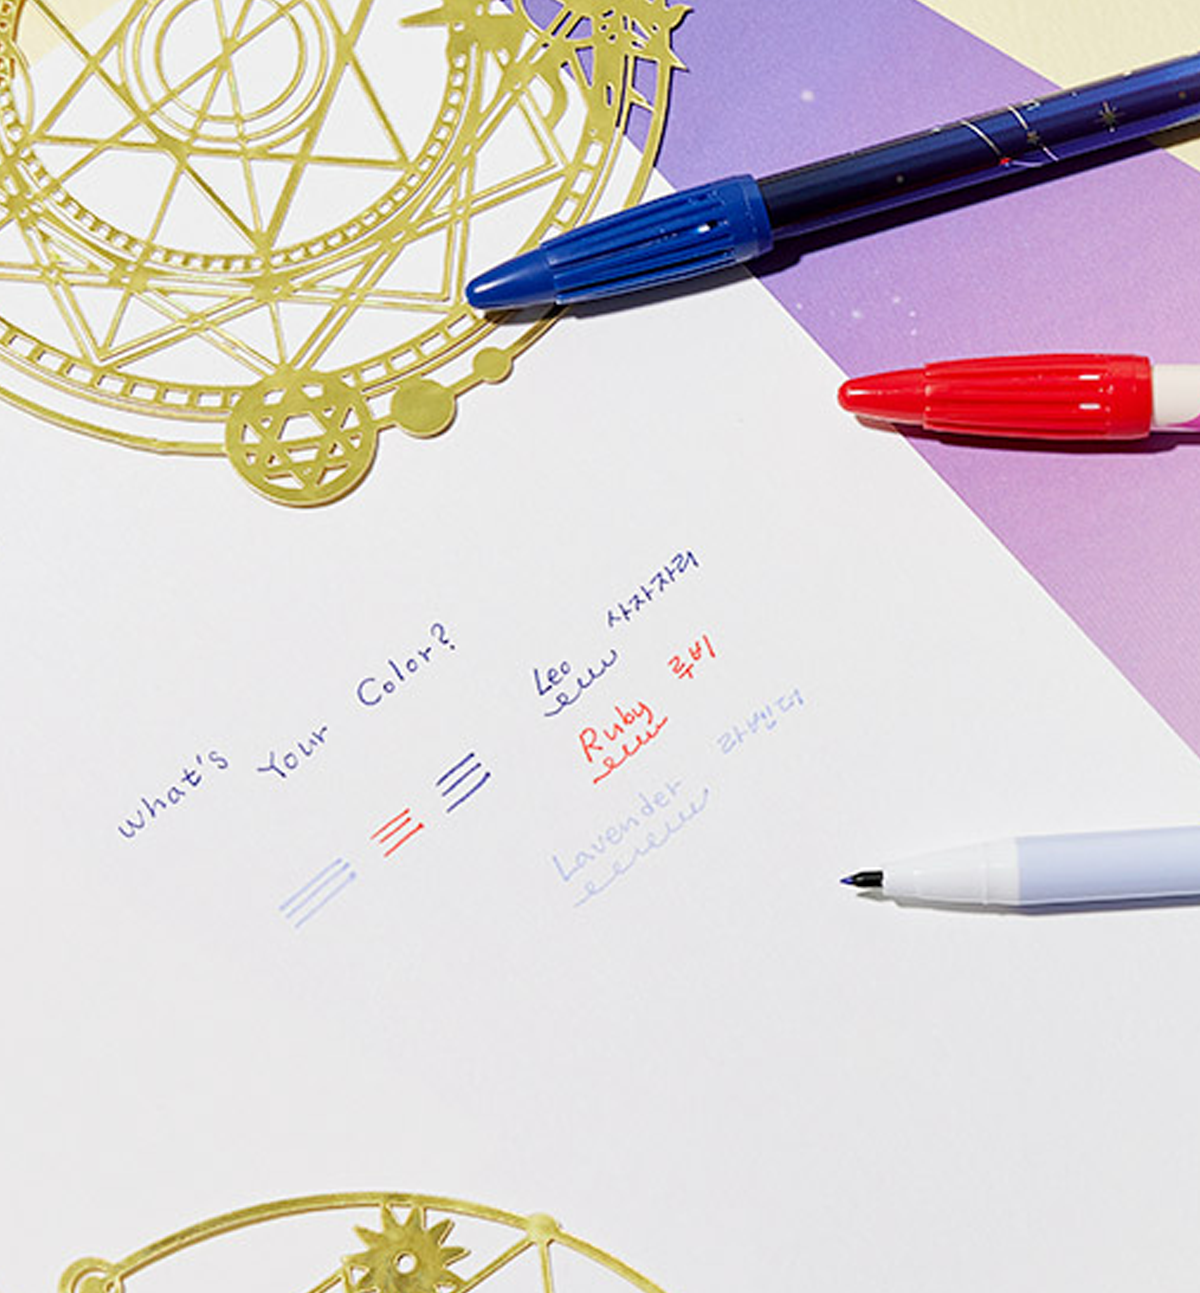 what's Your Color?
Leo 사자자리
Ruby 루비
Lavender 라벤더